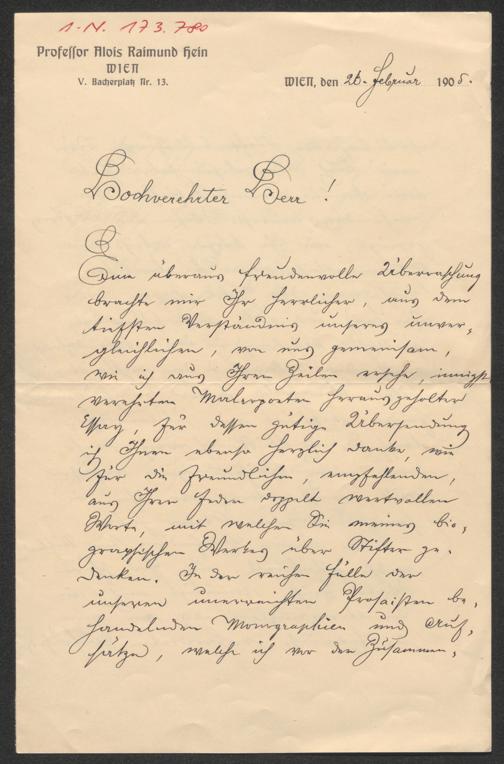 I.N. 173.780
Professor Alois Raimund Hein
WIEN
V. Bacherplatz Nr. 13.
WIEN, den 26. Februar 1905.
Hochverehrter Herr!
Eine überaus freudenvolle Überraschung
brachte mir Ihr herrlicher, aus dem
tiefsten Verständnis unseres unver-
gleichlichen, von uns gemeinsam,
wie ich aus Ihren Zeilen ersehe, innigst
verehrten Malerpoeten herausgeholter
Essay, für dessen gütige Übersendung
ich Ihnen ebenso herzlich danke, wie
für die freundlichen, empfehlenden,
aus Ihrer Feder doppelt wertvollen
Worte, mit welchen Sie meines bio-
graphischen Werkes über Stifter ge-
denken. In der reichen Fülle der
unseren unerreichten Prosaisten be-
handelnden Monographien und Auf-
sätze, welche ich vor der Zusammen-